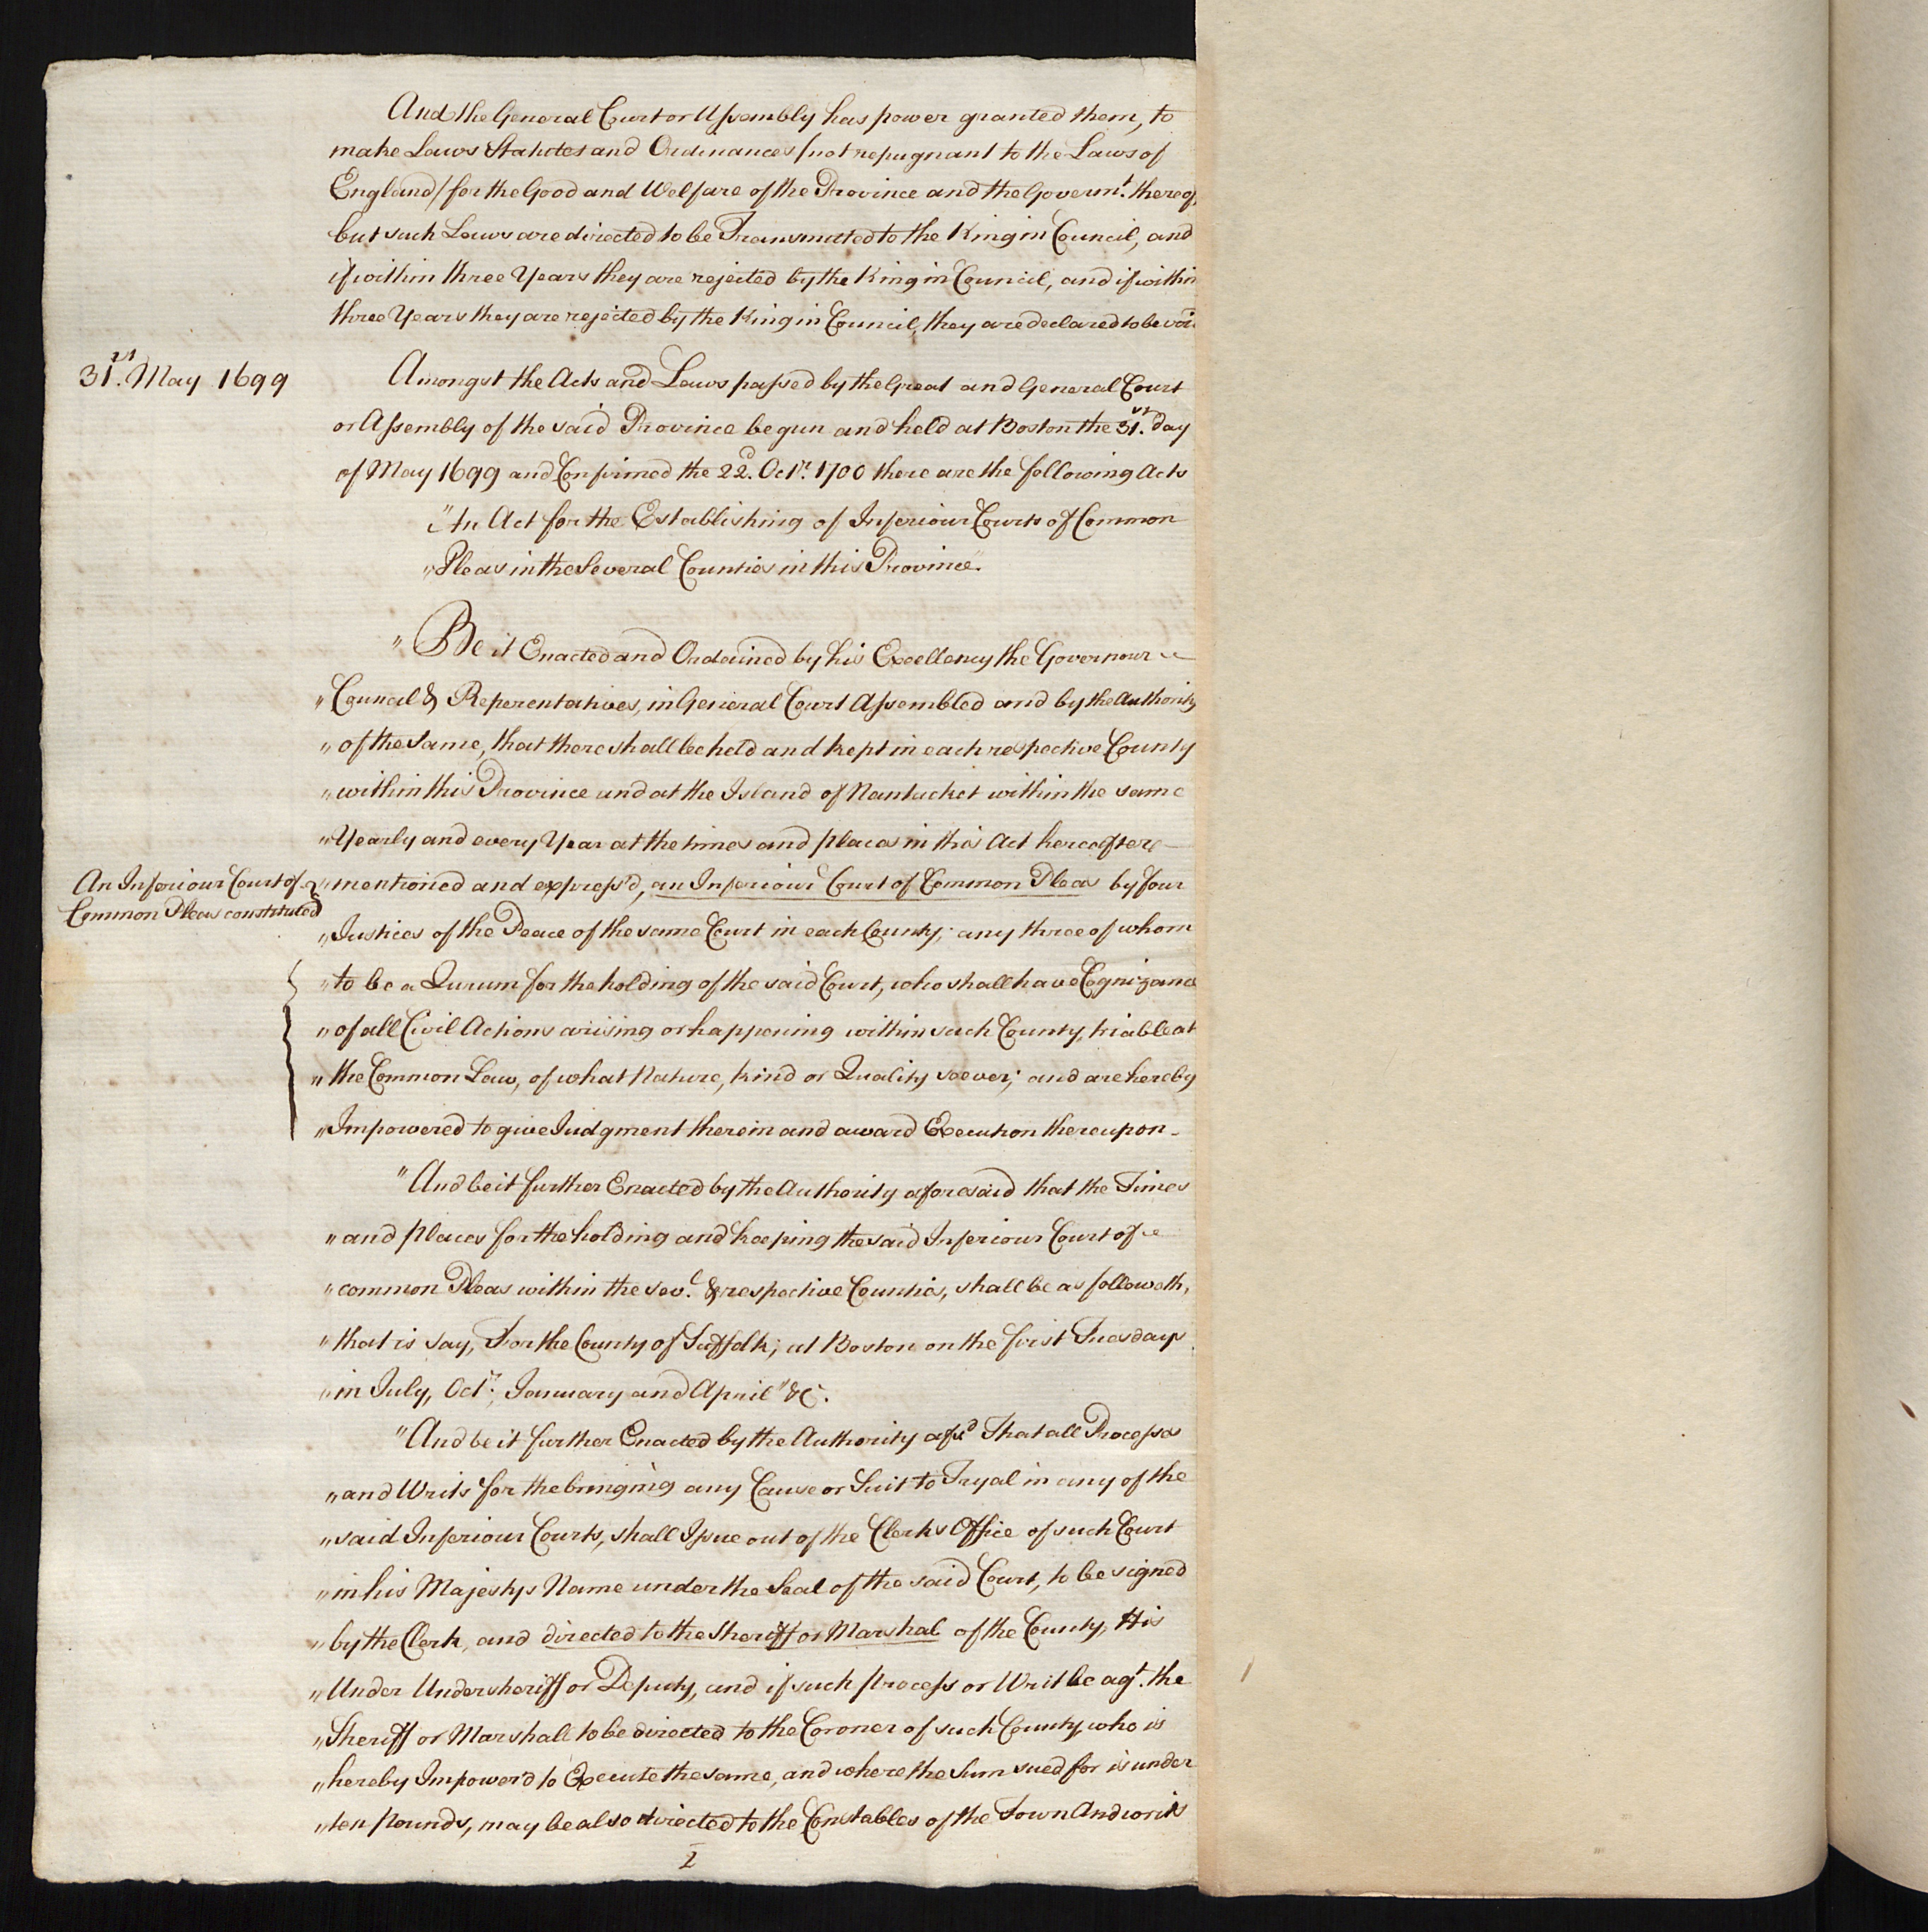 And the General Court or Assembly has power granted them, to
make Laws Statutes and Ordinances /not repugnant to the Laws of
England/ for the Good and Welfare of the Province and the Governt. thereof,
but such Laws are directed to be Transmitted to the King in Council, and
if within three Years they are rejected by the King in Council, and if within
three Years they are rejected by the King in Council, they are declared to be void
31st. May 1699
Amongst the Acts and Laws passed by the Great and General Court
or Assembly of the said Province begun and held at Boston the 31st. day
of May 1699 and Confirmed the 22d. Octr. 1700 there are the following Acts
"An Act for the Establishing of Inferiour Courts of Common
"Pleas in the Several Counties in this Province."
"Be it Enacted and Ordained by his Excellency the Governour
"Council & Reperentatives, in General Court Assembled and by the Authority
"of the Same, that there shall be held and kept in each respective County
"within this Province and at the Island of Nantucket within the same
"Yearly and every Year at the times and places in this Act hereafter
An Inferiour Court of
Common Pleas constituted
"mentioned and express'd, an Inferiour Court of Common Pleas by four
"Justices of the Peace of the same Court in each County; any three of whom
"to be a Qurum for the holding of the said Court, who shall have Cognizance
"of all Civil Actions arising or happening within such County, triable at
"the Common Law, of what Nature, kind or Quality soever; and are hereby
"Impowered to give Judgment therein and award Execution thereupon -
"And be it further Enacted by the Authority aforesaid that the Times
"and places for the holding and keeping the said Inferiour Court of
"common Pleas within the sevl. & respective Counties, shall be as followeth,
"that is say, For the County of Suffolk; at Boston on the first Tuesdays
"in July, Octr; January and April" &c.
"And be it further Enacted by the Authority afsd That all Processes
"and Writs for the bringing any Cause or Suit to Tryal in any of the
"said Inferiour Courts, shall Issue out of the Clerks Office of such Court
"in his Majestys Name under the Seal of the said Court, to be signed
"by the Clerk, and directed to the Sheriff or Marshal of the County, His
"Under Undersheriff or Deputy, and if such process or Writ be agt. the
"Sheriff or Marshall to be directed to the Coroner of such County, who is
"hereby Impower'd to Execute the same, and where the Sum sued for is under
"ten pounds, may be also directed to the Constables of the Town And writs